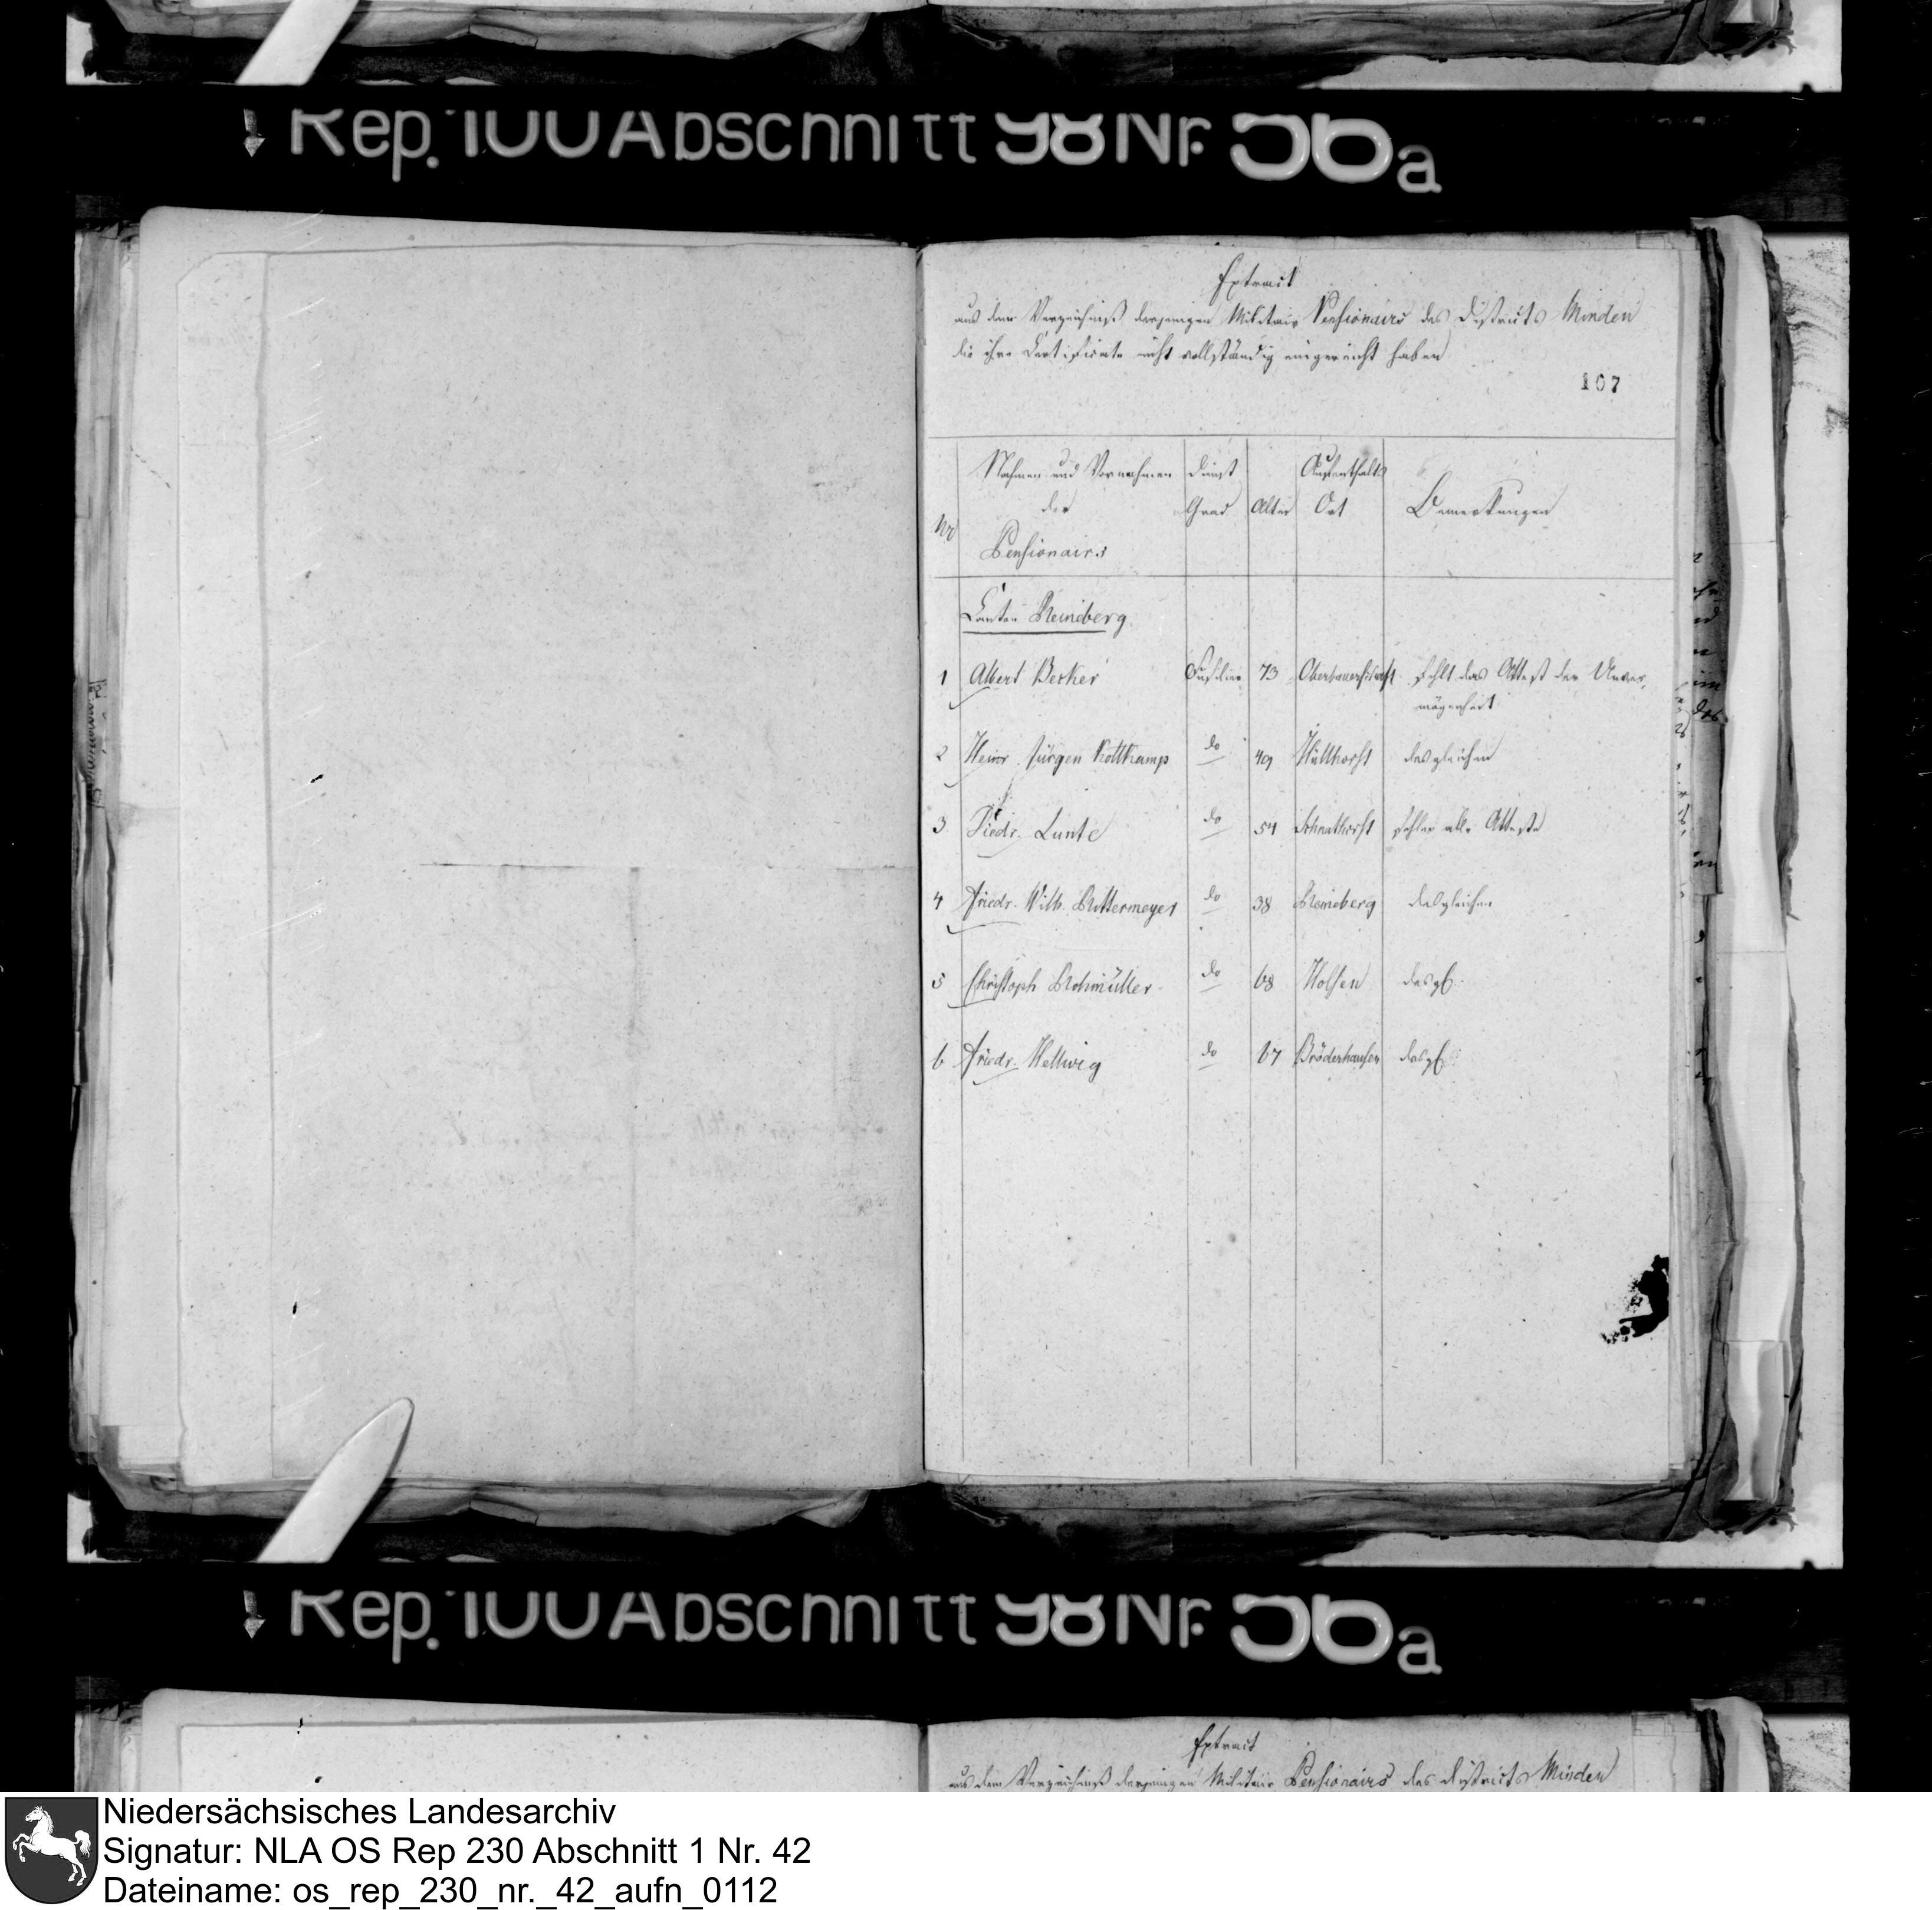 Rep. 100 Abschnitt 98 Nr. 56a
Extract
aus dem Verzeichniß derjenigen Militair Pensionairs des Districts Minden
die ihre Certificate nicht vollständig eingereicht haben
107
Nro Nahmen und Vornahmen der Pensionairs Dienst Grad Alter Aufenthalts Ort Bemerkungen
Canton Reineberg
1 Albert Becker Fusilier 73 Oberbauerschaft fehlt das Attest der Unver-
mögenheit
2 Heinr. Jürgen Kottkamp do 49 Hüllhorst desgleichen
3 Friedr. Lunte do 54 Schnathorst fehlen alle Atteste
4 Friedr. Wilh. Rittermeyer do 38 Reineberg desgleichen
5 Christoph Rohmüller do 68 Holsen desgl.
6 Friedr. Hellwig do 67 Bröderhausen desgl.
Rep. 100 Abschnitt 98 Nr. 56a
Extract
aus dem Verzeichniß derjenigen Militair Pensionairs des Districts Minden
Niedersächsisches Landesarchiv
Signatur: NLA OS Rep 230 Abschnitt 1 Nr. 42
Dateiname: os_rep_230_nr._42_aufn_0112